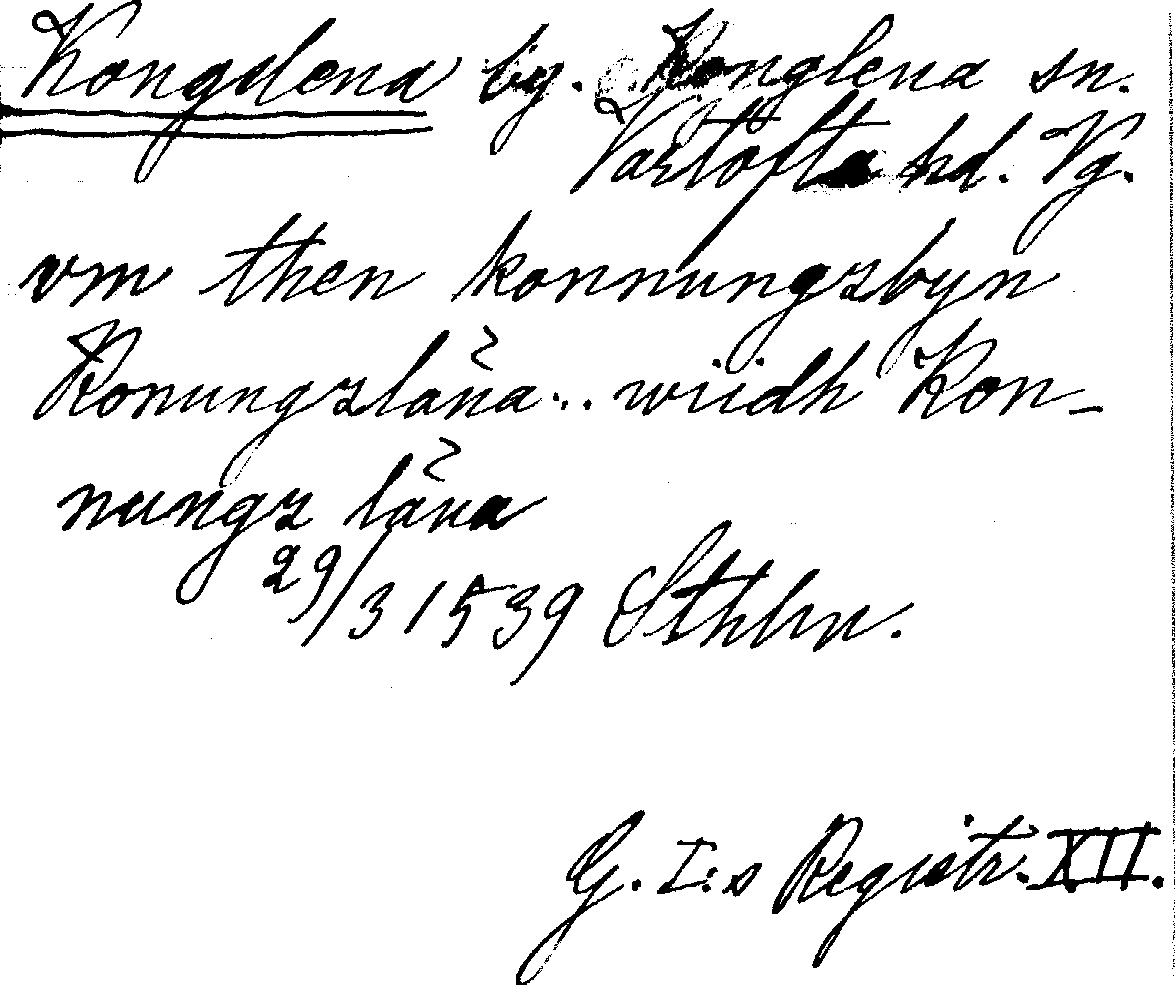 Kongslena by. Konglena sn.
Vartofta hd. Vg.
vm then konnungsbyn
Konungzläna... wiidh Kon-
nungz läna
29/3 1539 Sthlm.
G. I:s Registr. XII.